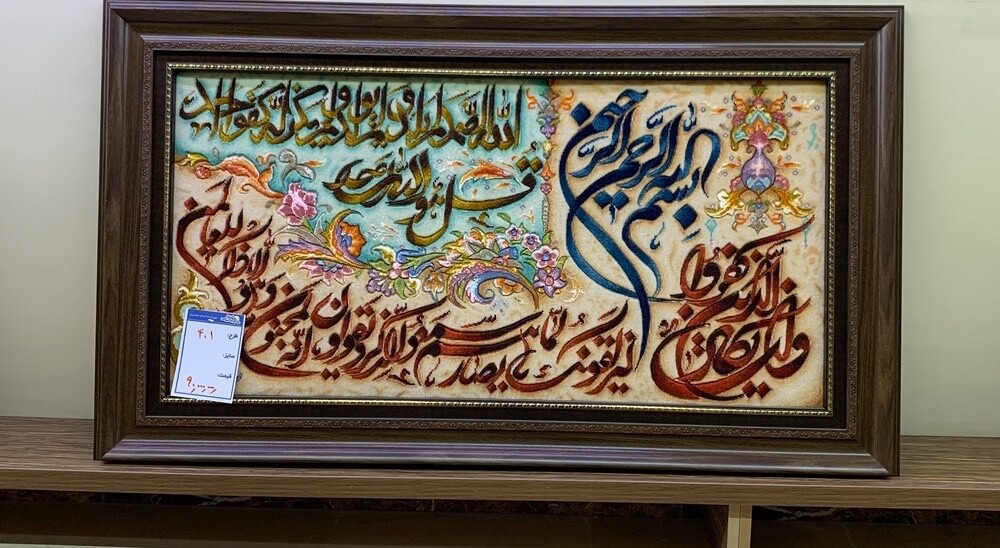 بسم الله الرحمن الرحیم
وان یکاد الذین کفروا
لیزلقونک بابصارهم لما سمعوا الذکر و یقولون انه لمجنون
و ما هو الا ذکر للعالمین
قل هو الله احد
الله الصمد لم یلد و لم یولد و لم یکن له کفوا احد
طرح: ۴۰۱
سایز:
قیمت: